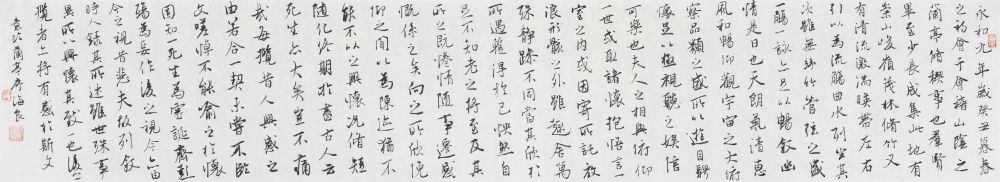 永和九年歲癸丑暮春
之初會于會稽山陰之
蘭亭脩禊事也群賢
畢至少長咸集此地有
崇山峻嶺茂林脩竹又
有清流激湍暎帶左右
引以為流觴曲水列坐其
次雖無絲竹管弦之盛
一觴一詠亦足以暢敘幽
情是日也天朗氣清惠
風和暢仰觀宇宙之大俯
察品類之盛所以遊目騁
懷足以極視聽之娛信
可樂也夫人之相與俯仰
一世或取諸懷抱悟言一
室之內或因寄所託放
浪形骸之外雖趣舍萬
殊靜躁不同當其欣於
所遇蹔得於己怏然自
足不知老之將至及其
所之既惓情隨事遷感
慨係之矣向之所欣俛
仰之間以為陳迹猶不
能不以之興懷況脩短
隨化終期於盡古人云
死生亦大矣豈不痛
哉每攬昔人興感之
由若合一契未嘗不臨
文嗟悼不能喻之於懷
固知一死生為虛誕齊彭
殤為妄作後之視今亦由
今之視昔悲夫故列敘
時人錄其所述雖世殊事
異所以興懷其致一也後之
攬者亦將有感於斯文
蘭亭序海良